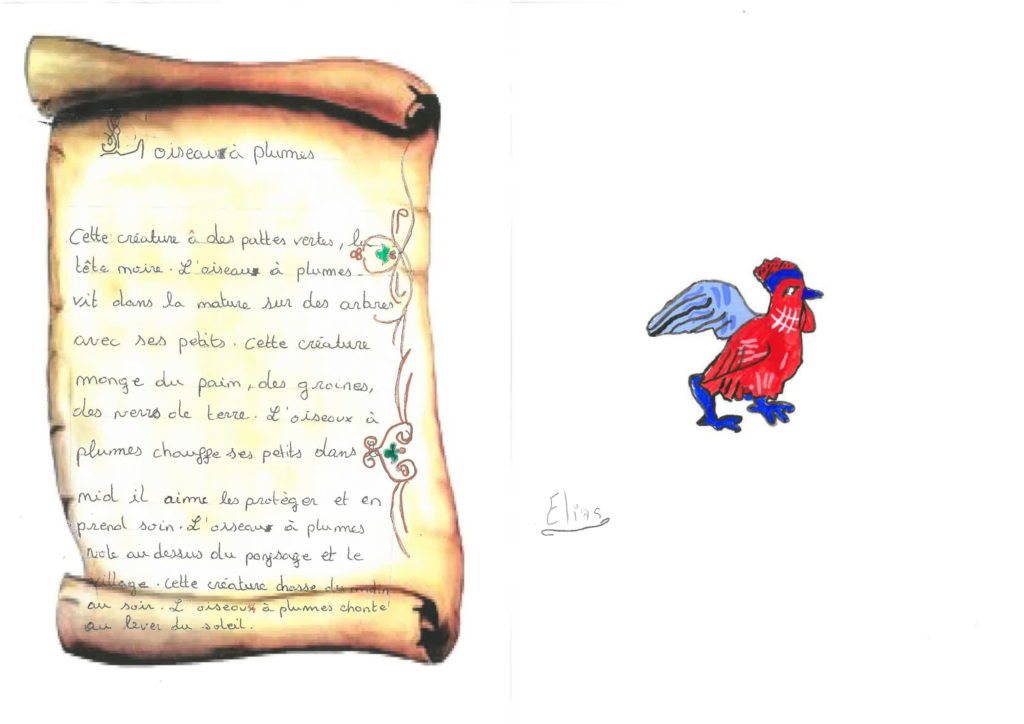 L'oiseau à plumes
Cette créature à des pattes vertes, la
tête noire. L'oiseau à plumes
vit dans la nature sur des arbres
avec ses petits. Cette créature
mange du pain, des graines,
des verrs de terre. L'oiseaux à
plumes chauffe ses petits dans
nid il aime les protèger et en
prend soin. L'oiseau à plumes
vole au dessus du paysage et le
village. Cette créature chasse du matin
au soir. L'oiseaux à plumes chante
au lever du soleil.
Elias